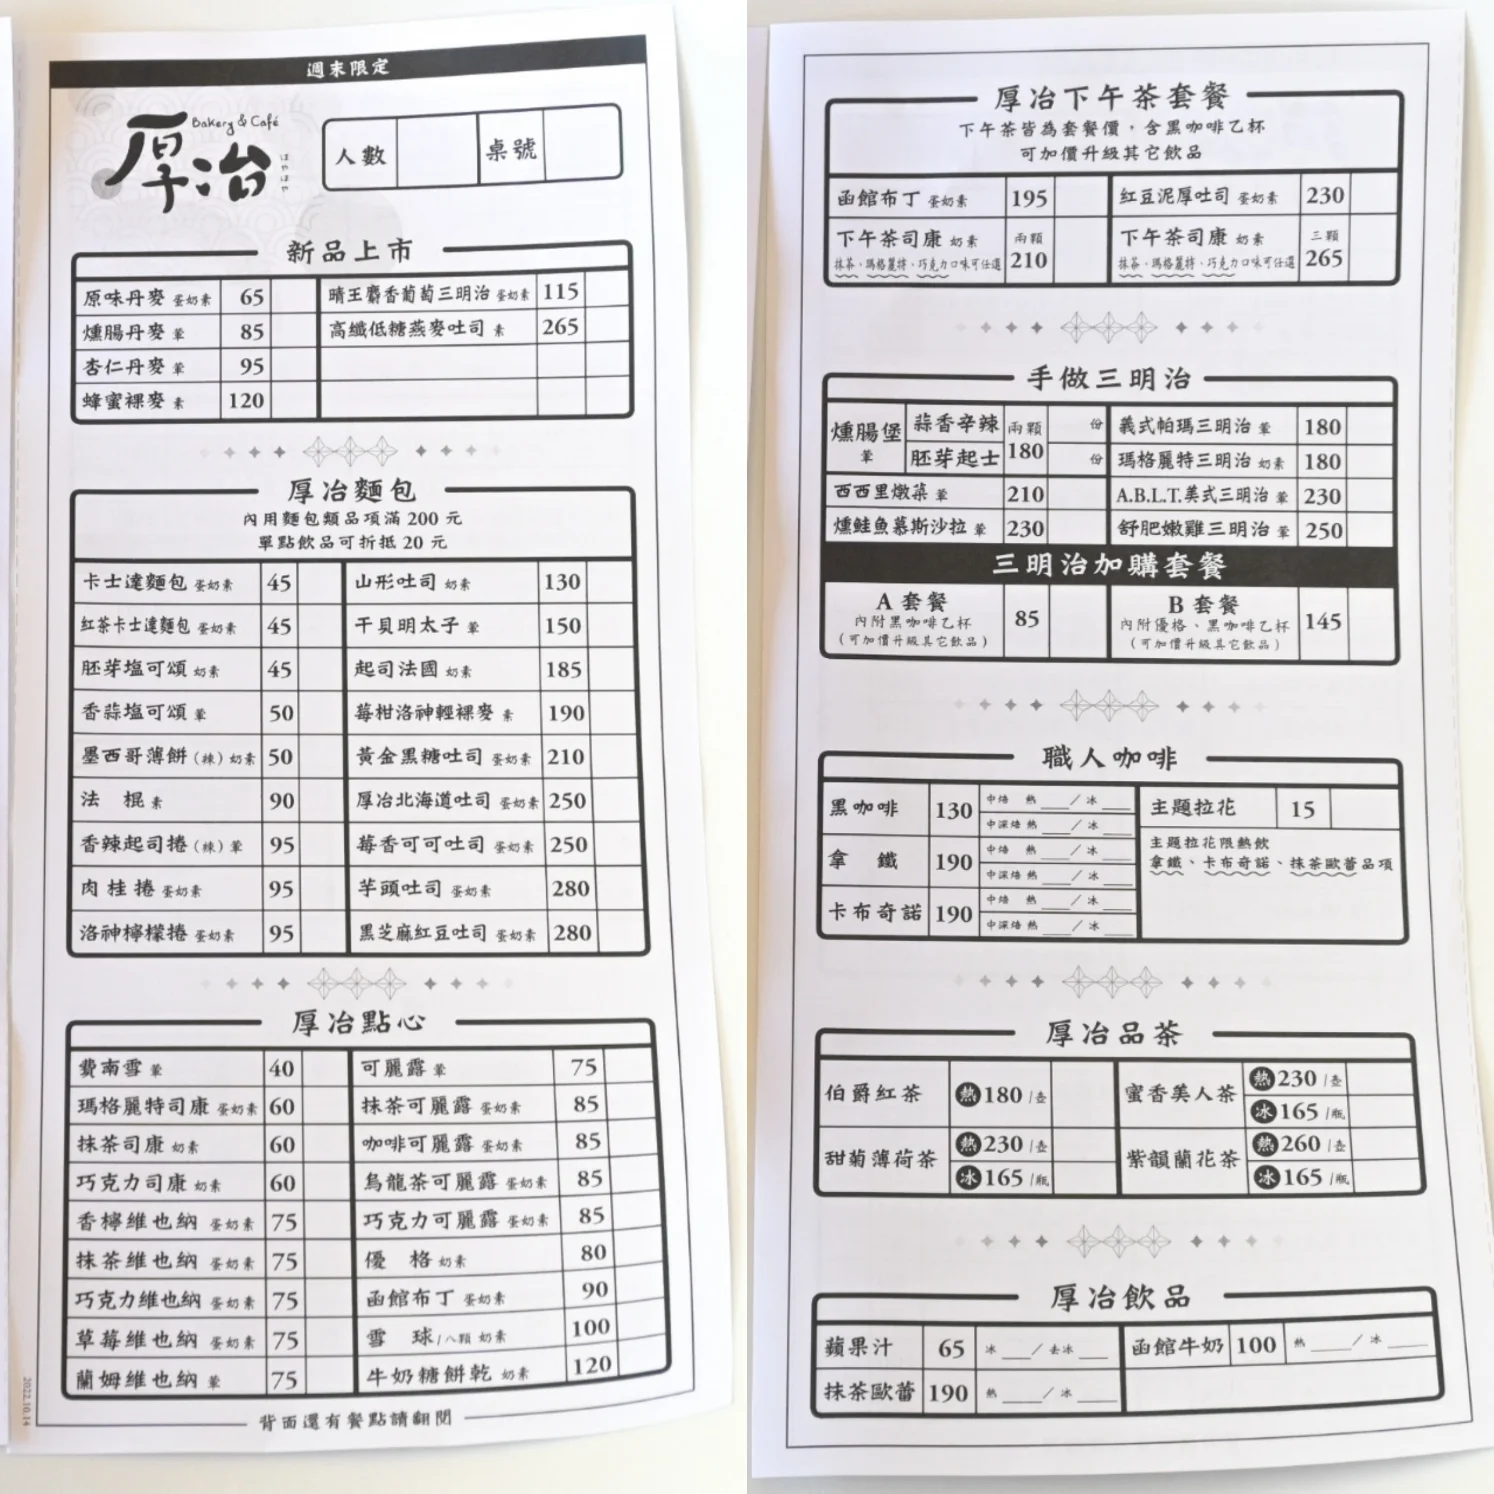 週末限定
Bakery & Café
厚冶
人數
桌號
新品上市
原味丹麥 蛋奶素 65
燻腸丹麥 葷 85
杏仁丹麥 葷 95
蜂蜜裸麥 素 120
晴王麝香葡萄三明治 蛋奶素 115
高纖低糖燕麥吐司 素 265
厚冶麵包
內用麵包類品項滿 200 元
單點飲品可折抵 20 元
卡士達麵包 蛋奶素 45
紅茶卡士達麵包 蛋奶素 45
胚芽塩可頌 奶素 45
香蒜塩可頌 葷 50
墨西哥薄餅(辣) 奶素 50
法 棍 素 90
香辣起司捲(辣) 葷 95
肉桂捲 蛋奶素 95
洛神檸檬捲 蛋奶素 95
山形吐司 奶素 130
干貝明太子 葷 150
起司法國 奶素 185
莓柑洛神輕裸麥 素 190
黃金黑糖吐司 蛋奶素 210
厚冶北海道吐司 蛋奶素 250
莓香可可吐司 蛋奶素 250
芋頭吐司 蛋奶素 280
黑芝麻紅豆吐司 蛋奶素 280
厚冶點心
費南雪 葷 40
瑪格麗特司康 蛋奶素 60
抹茶司康 奶素 60
巧克力司康 奶素 60
香檸維也納 蛋奶素 75
抹茶維也納 蛋奶素 75
巧克力維也納 蛋奶素 75
草莓維也納 蛋奶素 75
蘭姆維也納 葷 75
可麗露 葷 75
抹茶可麗露 蛋奶素 85
咖啡可麗露 蛋奶素 85
烏龍茶可麗露 蛋奶素 85
巧克力可麗露 蛋奶素 85
優 格 奶素 80
函館布丁 蛋奶素 90
雪 球/八顆 奶素 100
牛奶糖餅乾 奶素 120
背面還有餐點請翻閱
2022.10.14
厚冶下午茶套餐
下午茶皆為套餐價，含黑咖啡乙杯
可加價升級其它飲品
函館布丁 蛋奶素 195
下午茶司康 奶素 兩顆
抹茶、瑪格麗特、巧克力口味可任選 210
紅豆泥厚吐司 蛋奶素 230
下午茶司康 奶素 三顆
抹茶、瑪格麗特、巧克力口味可任選 265
手做三明治
燻腸堡 葷
蒜香辛辣 份
胚芽起士 份
兩顆 180
西西里燉菜 葷 210
燻鮭魚慕斯沙拉 葷 230
義式帕瑪三明治 葷 180
瑪格麗特三明治 奶素 180
A.B.L.T.美式三明治 葷 230
舒肥嫩雞三明治 葷 250
三明治加購套餐
A 套餐
內附黑咖啡乙杯 85
(可加價升級其它飲品)
B 套餐
內附優格、黑咖啡乙杯 145
(可加價升級其它飲品)
職人咖啡
黑咖啡 130 中焙 熱 ___ / 冰 ___
中深焙 熱 ___ / 冰 ___
拿 鐵 190 中焙 熱 ___ / 冰 ___
中深焙 熱 ___ / 冰 ___
卡布奇諾 190 中焙 熱 ___ / 冰 ___
中深焙 熱 ___ / 冰 ___
主題拉花 15
主題拉花限熱飲
拿鐵、卡布奇諾、抹茶歐蕾品項
厚冶品茶
伯爵紅茶 熱 180 /壺
甜菊薄荷茶 熱 230 /壺
冰 165 /瓶
蜜香美人茶 熱 230 /壺
冰 165 /瓶
紫韻蘭花茶 熱 260 /壺
冰 165 /瓶
厚冶飲品
蘋果汁 65 冰 ___ / 去冰 ___
抹茶歐蕾 190 熱 ___ / 冰 ___
函館牛奶 100 熱 ___ / 冰 ___